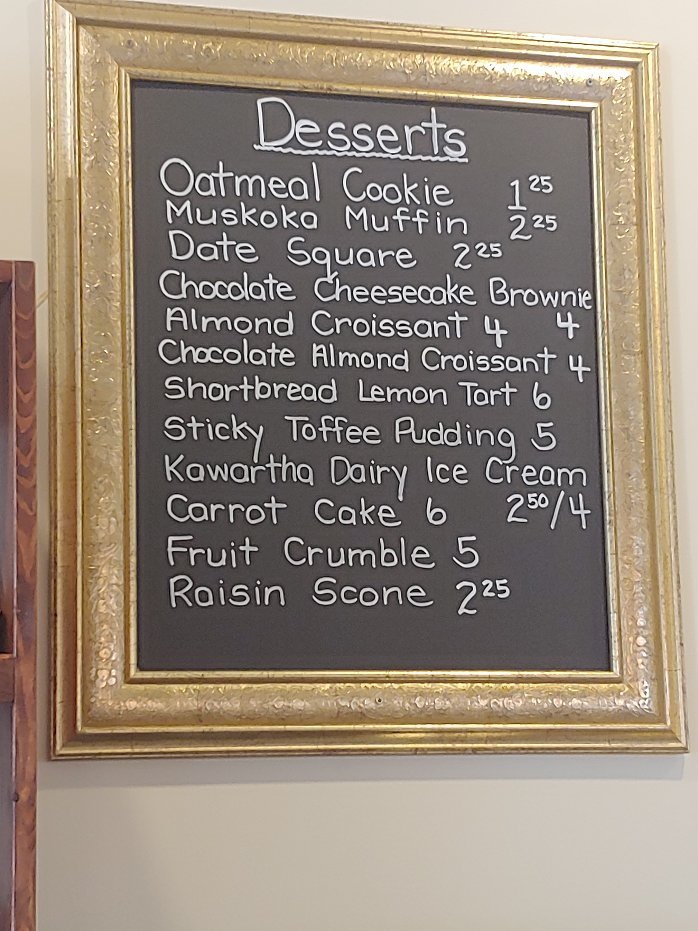 Desserts
Oatmeal Cookie 1 25
Muskoka Muffin 2 25
Date Square 2 25
Chocolate Cheesecake Brownie
Almond Croissant 4 4
Chocolate Almond Croissant 4
Shortbread Lemon Tart 6
Sticky Toffee Pudding 5
Kawartha Dairy Ice Cream
Carrot Cake 6 2 50/4
Fruit Crumble 5
Raisin Scone 2 25